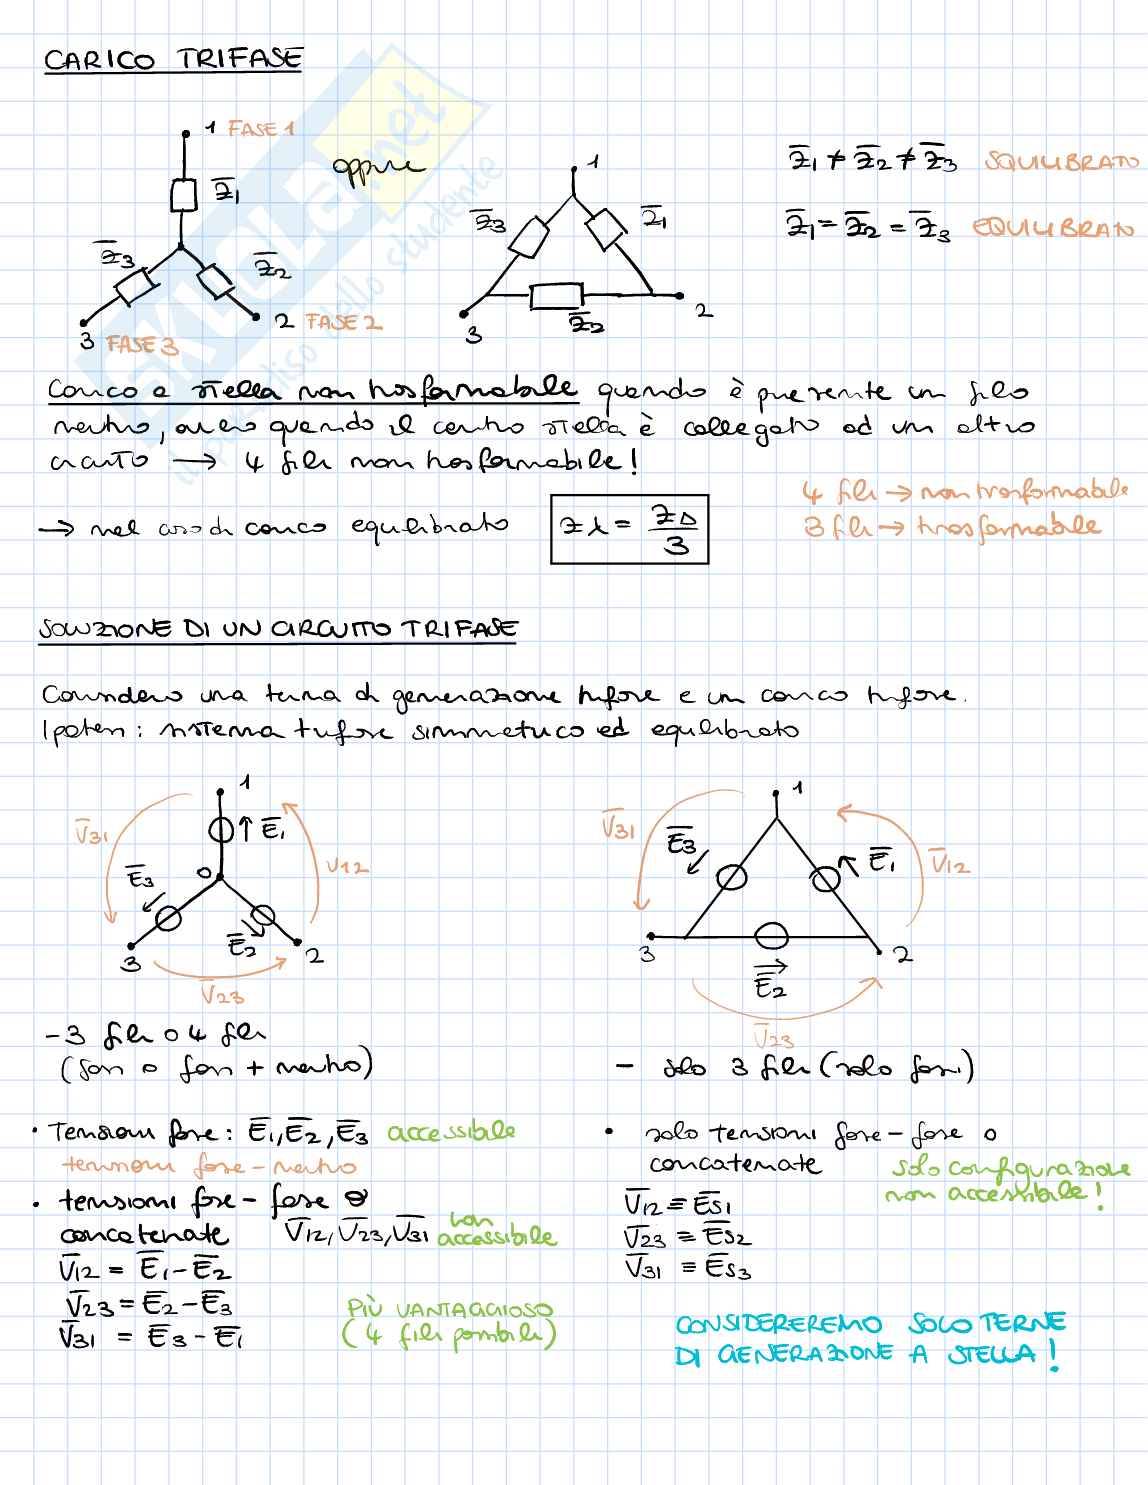 CARICO TRIFASE
1 FASE 1
Z̅1
Z̅3
Z̅2
2 FASE 2
3 FASE 3
oppure
1
Z̅3
Z̅1
Z̅2
2
3
Z̅1 ≠ Z̅2 ≠ Z̅3 SQUILIBRATO
Z̅1 = Z̅2 = Z̅3 EQUILIBRATO
SKUOLA.net
il paradiso dello studente
Carico a stella non trasformabile quando è presente un filo
neutro, ovvero quando il centro stella è collegato ad un altro
circuito → 4 fili non trasformabile!
4 fili → non trasformabile
3 fili → trasformabile
→ nel caso di carico equilibrato Zλ = ZΔ/3
SOLUZIONE DI UN CIRCUITO TRIFASE
Considero una terna di generazione trifase e un carico trifase.
Ipotesi: sistema trifase simmetrico ed equilibrato
1
V̅31
E̅1
V12
E̅3
0
E̅2
3
2
V̅23
1
V̅31
E̅3
E̅1
V̅12
3
2
E̅2
V̅23
- 3 fili o 4 fili
(fasi o fasi + neutro)
- solo 3 fili (solo fasi)
• Tensioni fase: E̅1, E̅2, E̅3 accessibile
tensioni fase-neutro
• tensioni fase-fase o
concatenate V̅12, V̅23, V̅31 non accessibile
V̅12 = E̅1 - E̅2
V̅23 = E̅2 - E̅3
V̅31 = E̅3 - E̅1
PIÙ VANTAGGIOSO
(4 fili possibili)
• solo tensioni fase-fase o
concatenate
solo configurazione
non accessibile!
V̅12 ≡ E̅s1
V̅23 ≡ E̅s2
V̅31 ≡ E̅s3
CONSIDEREREMO SOLO TERNE
DI GENERAZIONE A STELLA!